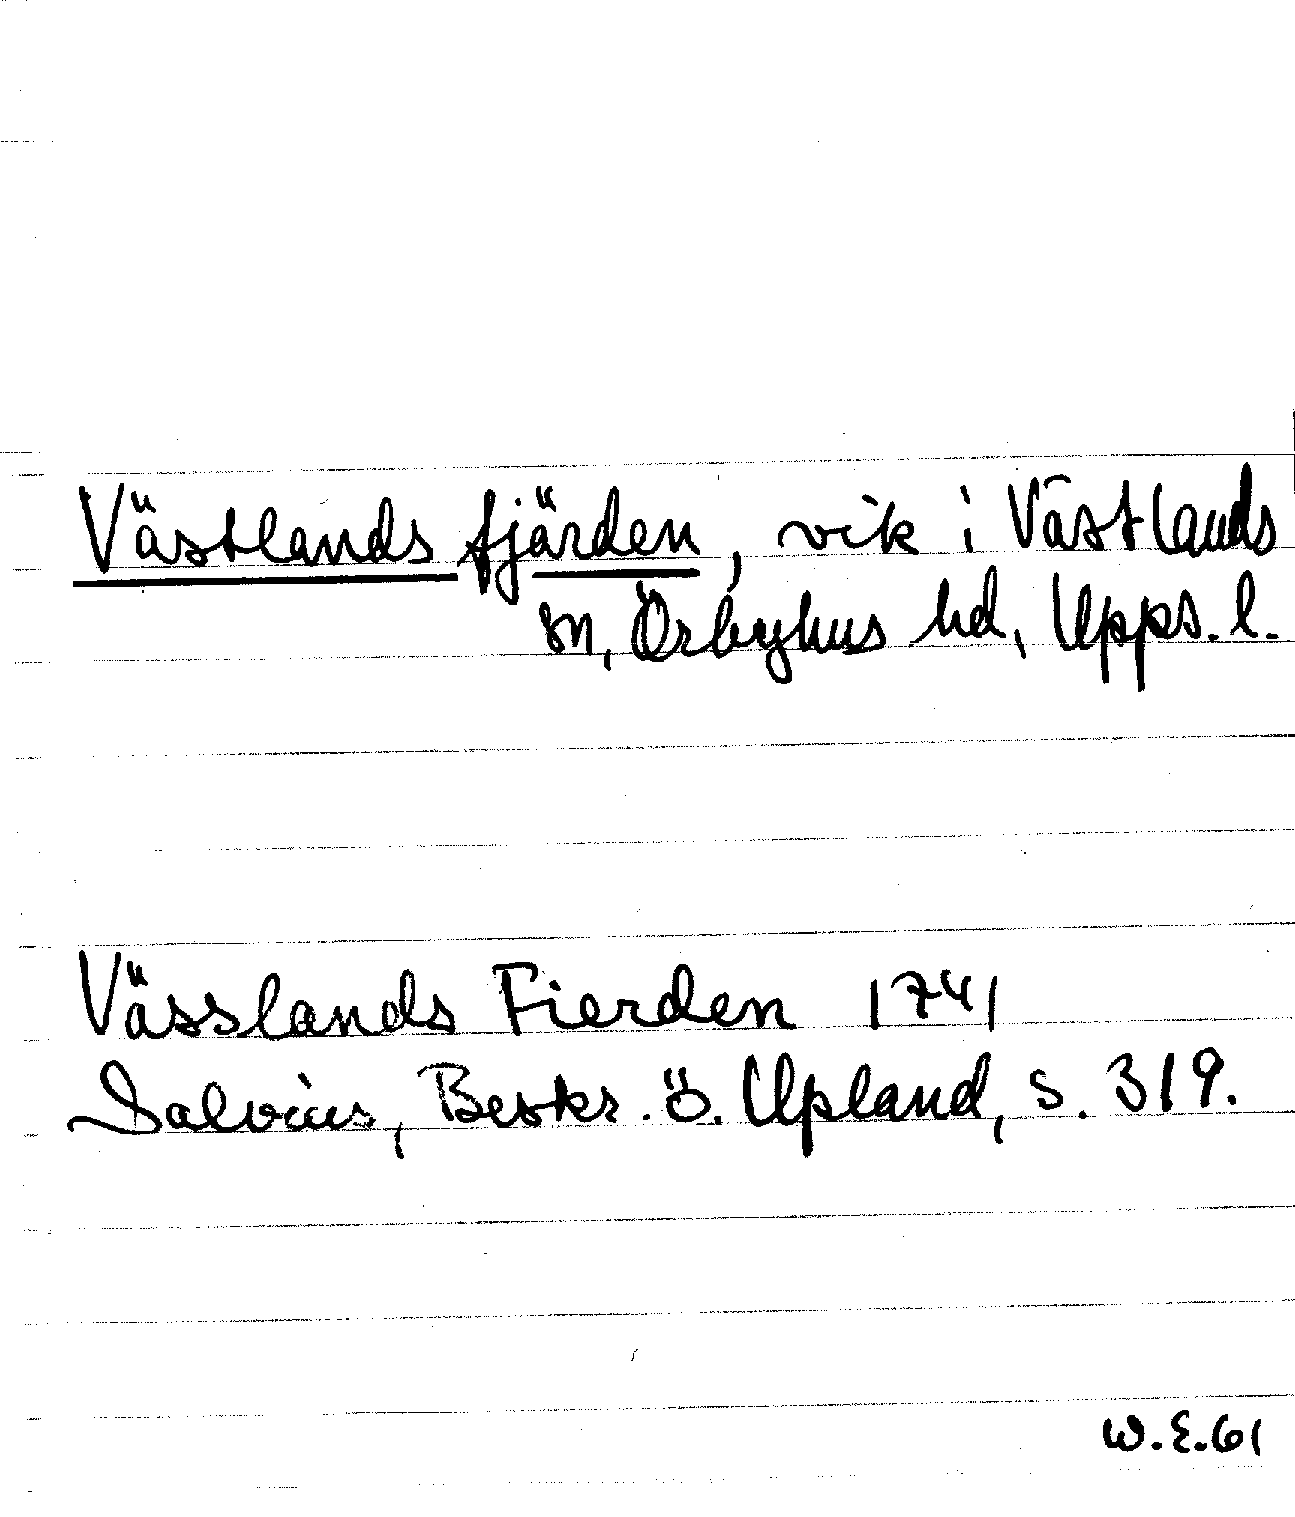 Västlandsfjärden, vik i Västlands
sn, Örbyhus hd, Upps. l.
Vässlands Fierden 1741
Salvius, Beskr. ö. Upland, s. 319.
W.E.61